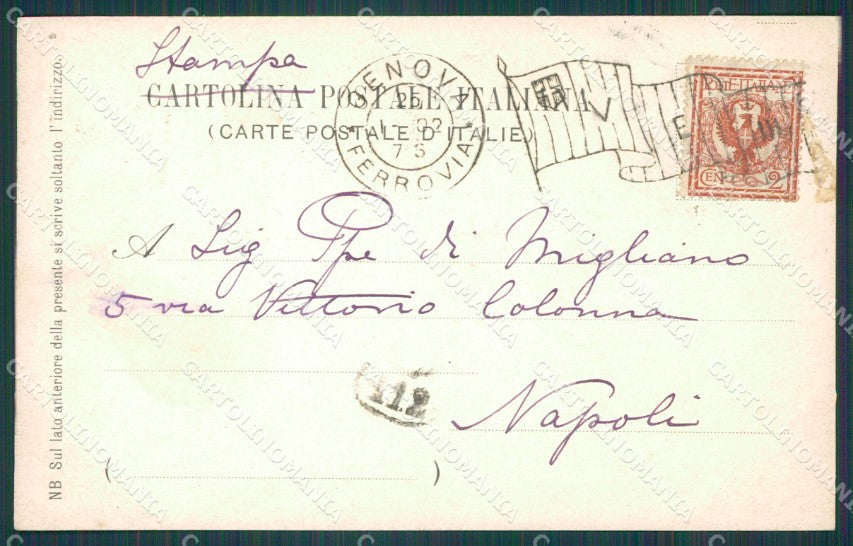 Stampa
CARTOLINA POSTALE ITALIANA
(CARTE POSTALE D'ITALIE)
GENOVA
FERROVIA
A Sig Ppe di Migliano
5 via Vittorio Colonna
Napoli
112
NB Sul lato anteriore della presente si scrive soltanto l'indirizzo.
CARTOLINOMANIA